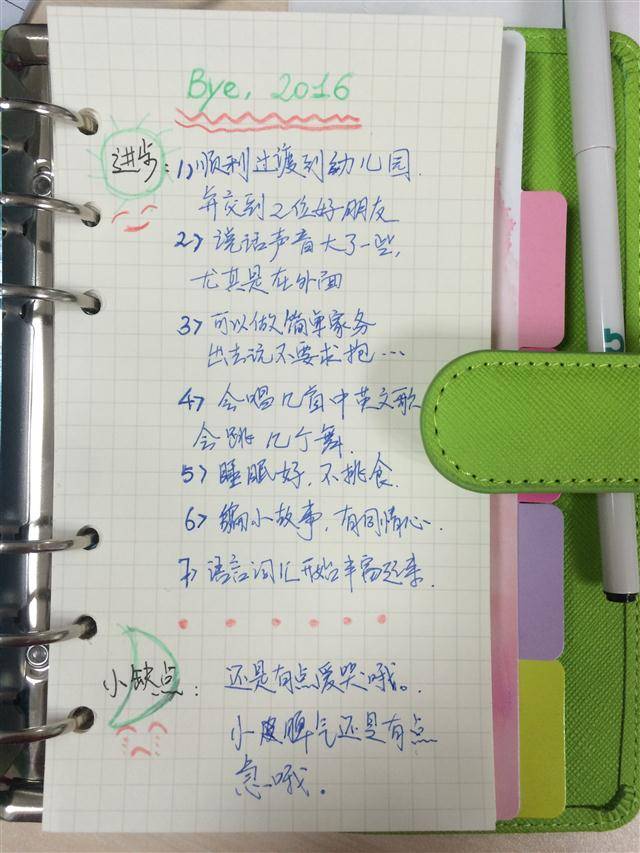 Bye, 2016
进步: 1>顺利过渡到幼儿园.
并交到2位好朋友
2> 说话声音大了一些,
尤其是在外面
3> 可以做简单家务
出去玩不要求抱…
4> 会唱几首中英文歌
会跳几个舞.
5> 睡眠好, 不挑食.
6> 编小故事, 有同情心.
7> 语言词汇开始丰富起来.
小缺点: 还是有点爱哭哦。
小脾气还是有点
急哦。